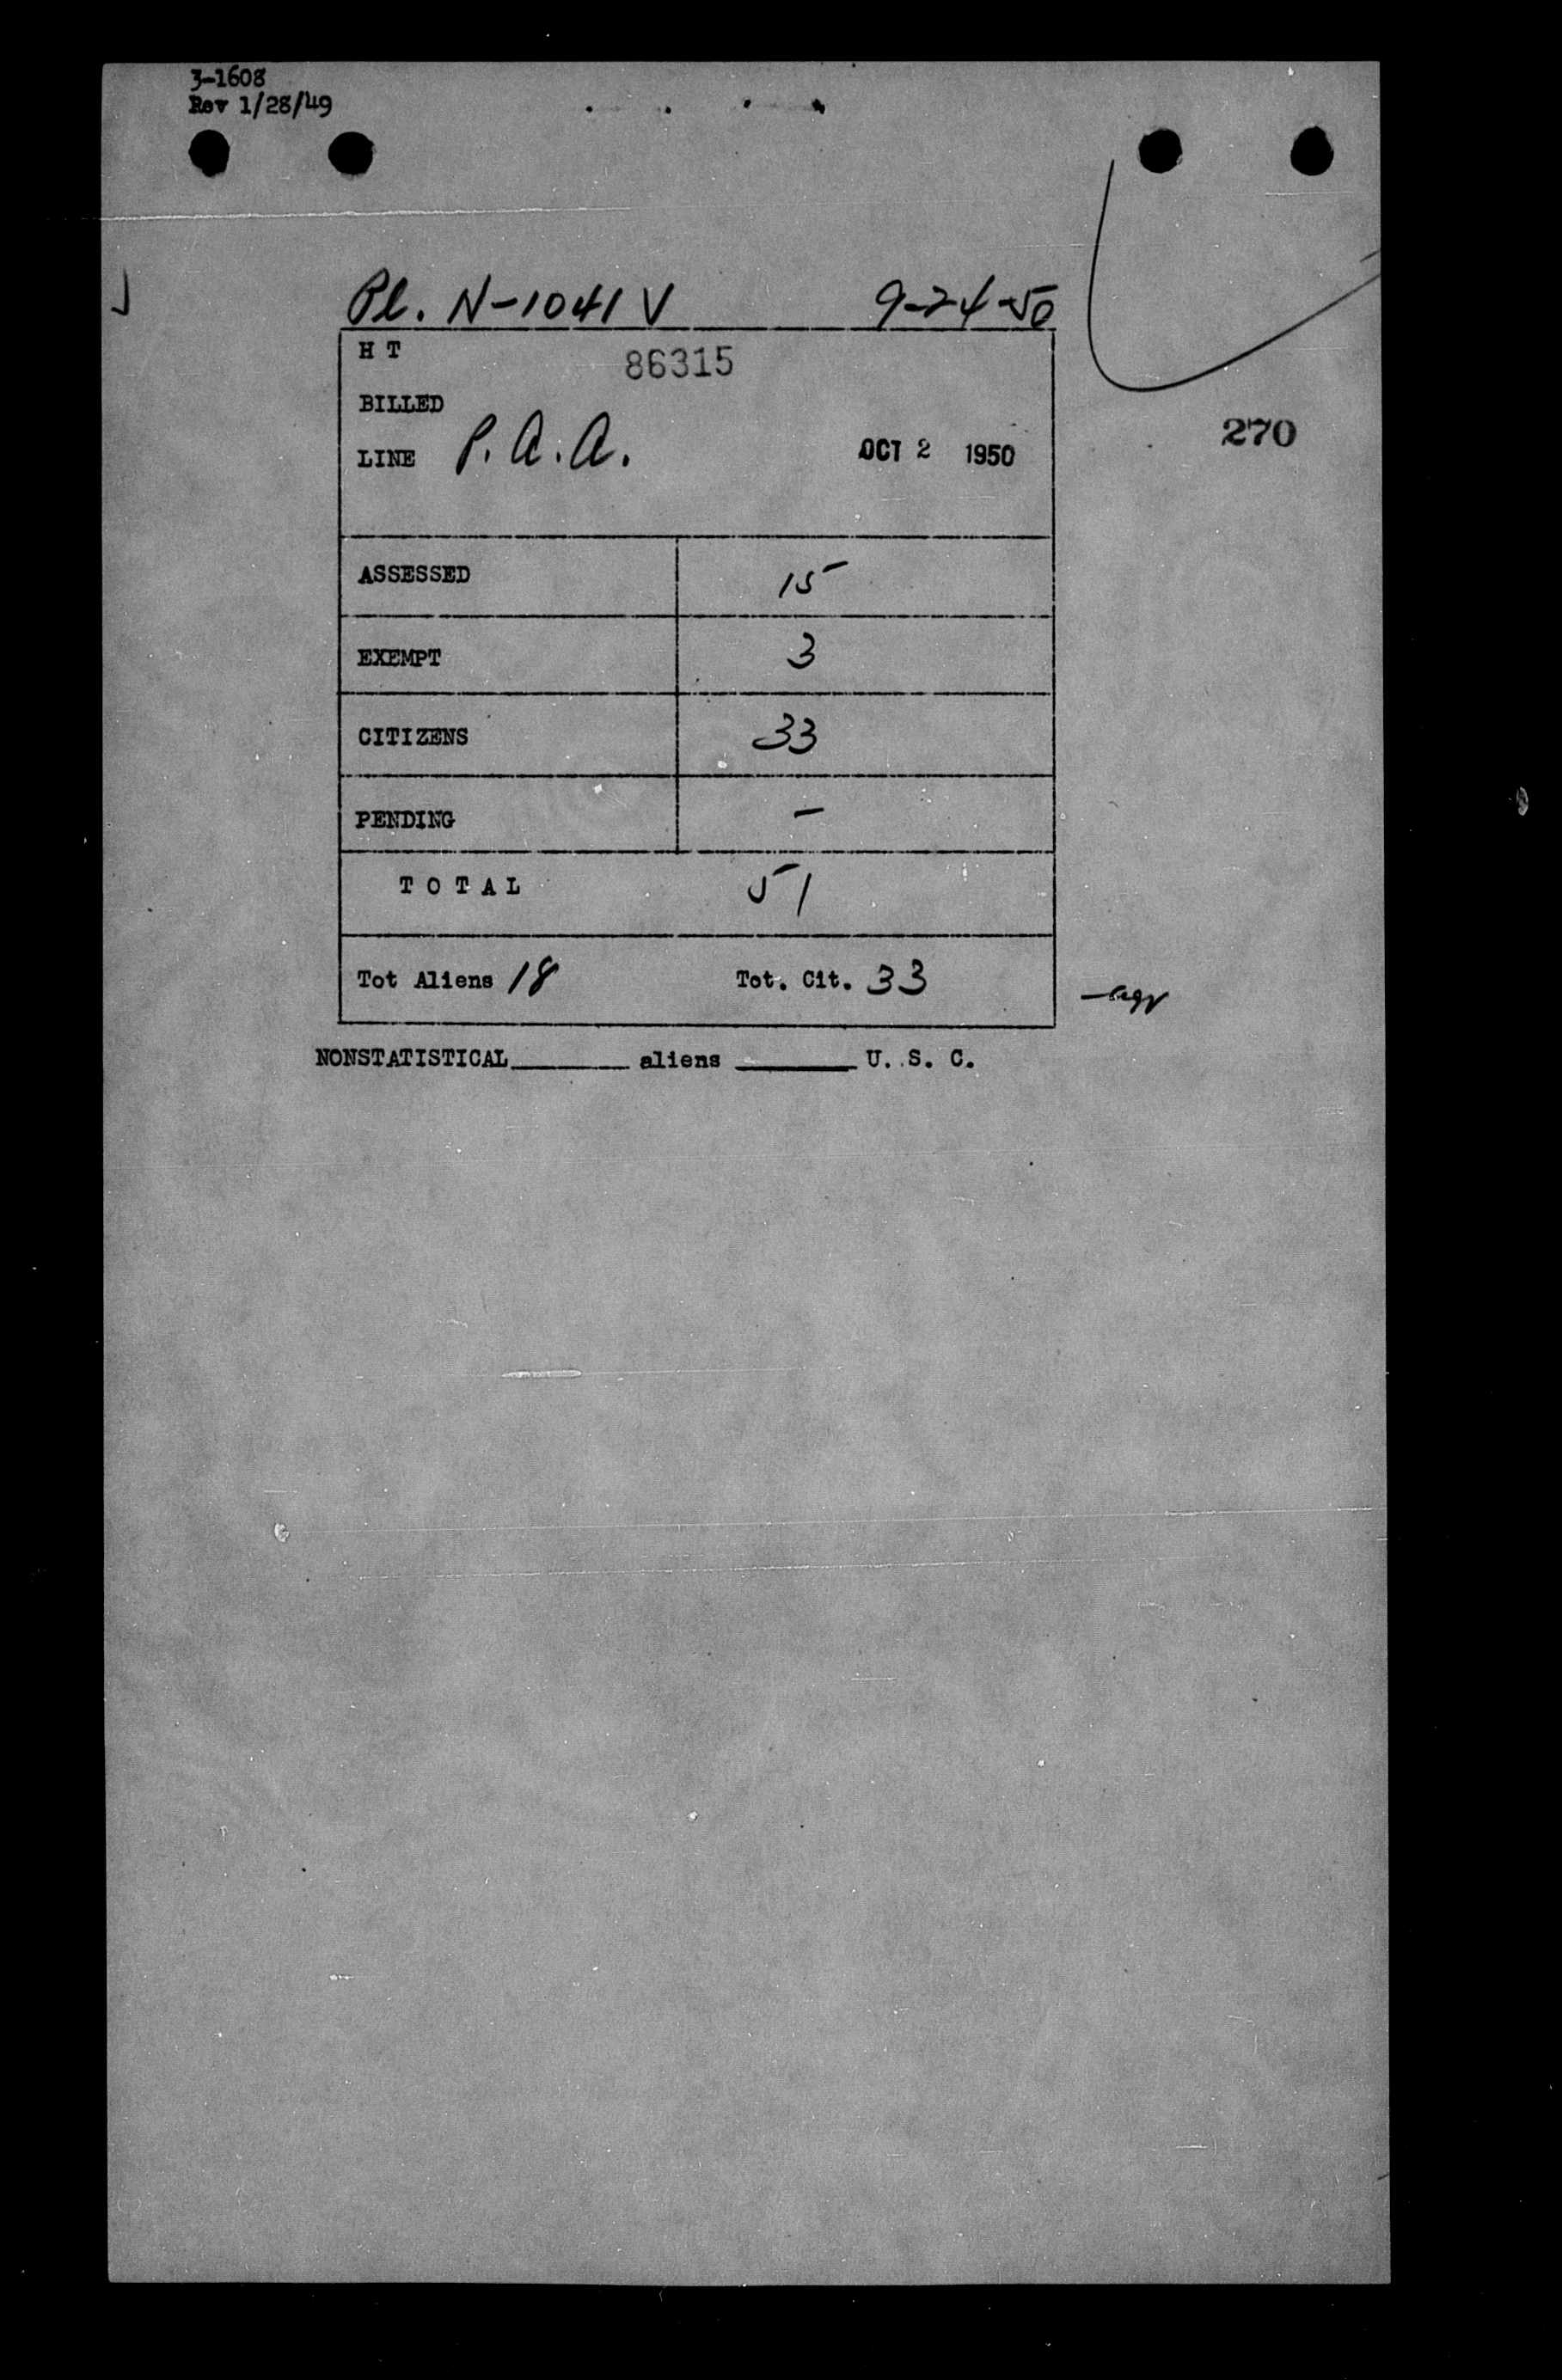 3-1608
Rev 1/28/49
Pl. N-1041 V 9-24-50
H T 86315
BILLED
270
LINE P.A.A. OCT 2 1950
ASSESSED 15
EXEMPT 3
CITIZENS 33
PENDING –
TOTAL 51
Tot Aliens 18 Tot. Cit. 33
NONSTATISTICAL______ aliens ______ U. S. C.